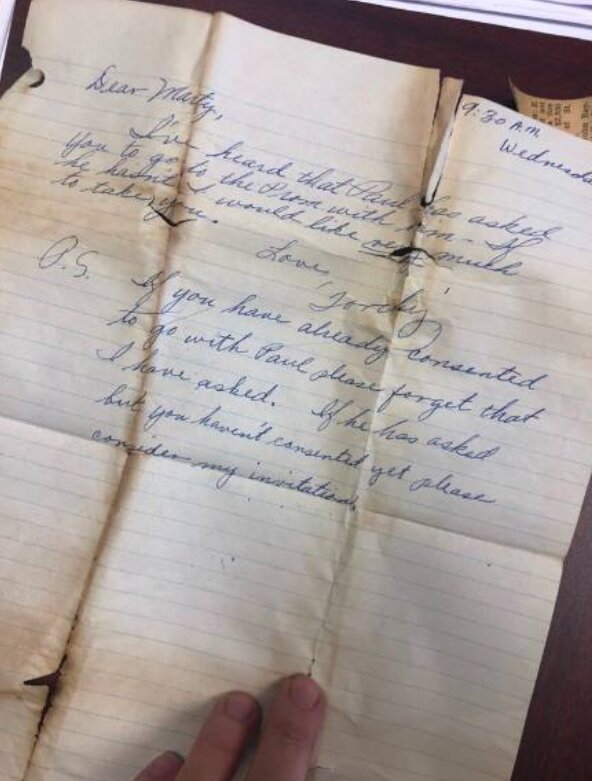 9:30 A.M.
Wednesda
Dear Marty,
I've heard that Paul has asked
you to go to the Prom with him - If
he hasn't I would like very much
to take you.
Love,
P.S. If you have already consented
to go with Paul please forget that
I have asked. If he has asked
but you haven't consented yet please
consider my invitation.